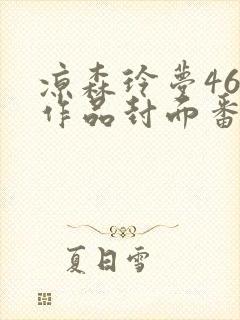 凉森玲梦46
作品封面番
夏日雪